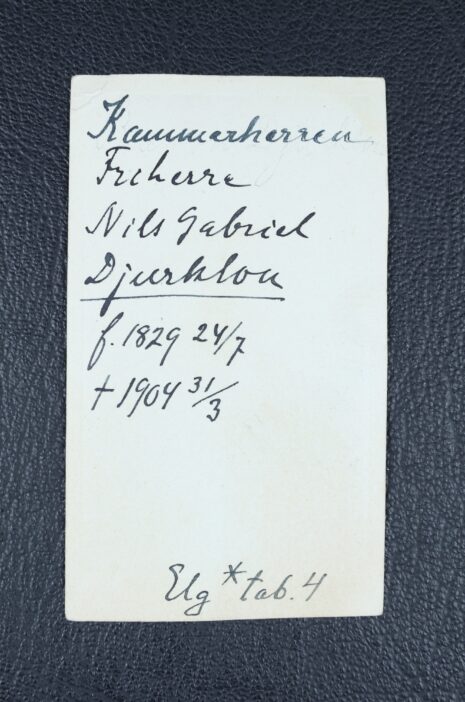 Kammarherren
Friherre
Nils Gabriel
Djurklou
f. 1829 24/7
† 1904 31/3
Elg * tab. 4